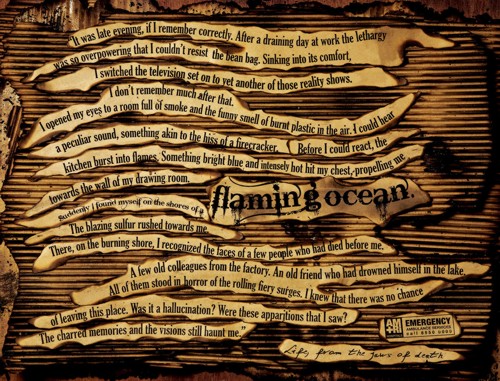 "It was late evening, if I remember correctly. After a draining day at work the lethargy
was so overpowering that I couldn't resist the bean bag. Sinking into its comfort,
I switched the television set on to yet another of those reality shows.
I don't remember much after that.
I opened my eyes to a room full of smoke and the funny smell of burnt plastic in the air. I could hear
a peculiar sound, something akin to the hiss of a firecracker. Before I could react, the
kitchen burst into flames. Something bright blue and intensely hot hit my chest, propelling me
towards the wall of my drawing room.
Suddenly I found myself on the shores of a
flaming ocean.
The blazing sulfur rushed towards me.
There, on the burning shore, I recognized the faces of a few people who had died before me.
A few old colleagues from the factory. An old friend who had drowned himself in the lake.
All of them stood in horror of the rolling fiery surges. I knew that there was no chance
of leaving this place. Was it a hallucination? Were these apparitions that I saw?
The charred memories and the visions still haunt me."
EMERGENCY
AMBULANCE SERVICES
Life, from the jaws of death